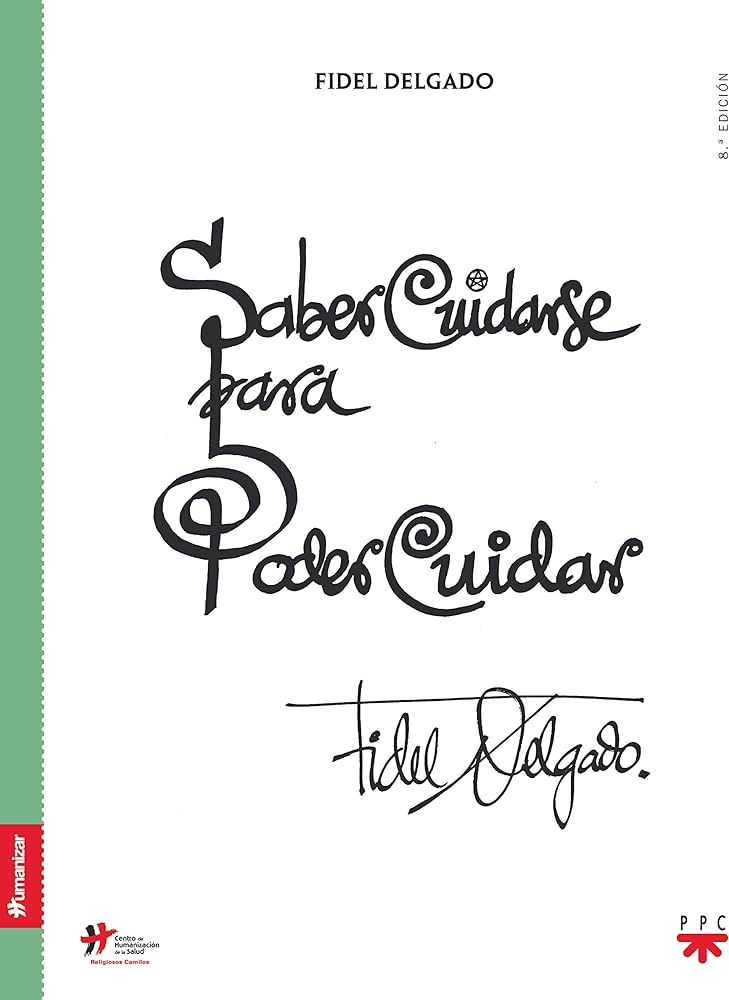 FIDEL DELGADO
8.ª EDICIÓN
Saber Cuidarse
para
Poder Cuidar
Fidel Delgado.
Humanizar
Centro de
Humanización
de la Salud
Religiosos Camilos
PPC